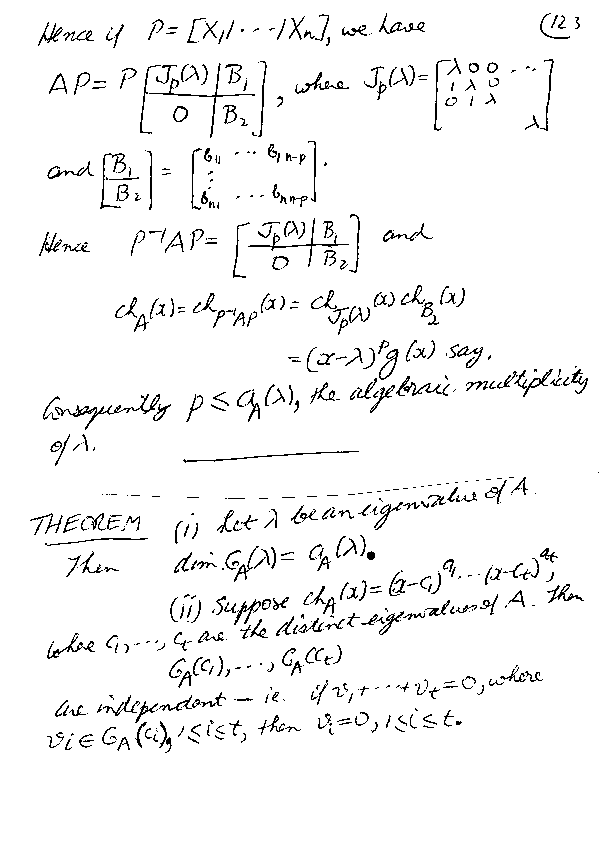 Hence if P = [X₁|···|Xₙ], we have (123
AP = P [J_p(λ) | B₁ / 0 | B₂], where J_p(λ) = [λ 0 0 ··· / 1 λ 0 / 0 1 λ / λ]
and [B₁ / B₂] = [b₁₁ ··· b₁ n-p / ⋮ / bₙ₁ ··· bₙ n-p].
Hence P⁻¹AP = [J_p(λ) | B₁ / 0 | B₂] and
ch_A(x) = ch_{P⁻¹AP}(x) = ch_{J_p(λ)}(x) ch_{B₂}(x)
= (x-λ)^p g(x) say.
Consequently p ≤ a_A(λ), the algebraic multiplicity
of λ.
THEOREM (i) Let λ be an eigenvalue of A.
Then dim G_A(λ) = a_A(λ).
(ii) Suppose ch_A(x) = (x-c₁)^{a₁} ··· (x-c_t)^{a_t},
where c₁, ···, c_t are the distinct eigenvalues of A. Then
G_A(c₁), ···, G_A(c_t)
are independent — ie. if v₁+···+v_t = 0, where
v_i ∈ G_A(c_i), 1≤i≤t, then v_i = 0, 1≤i≤t.